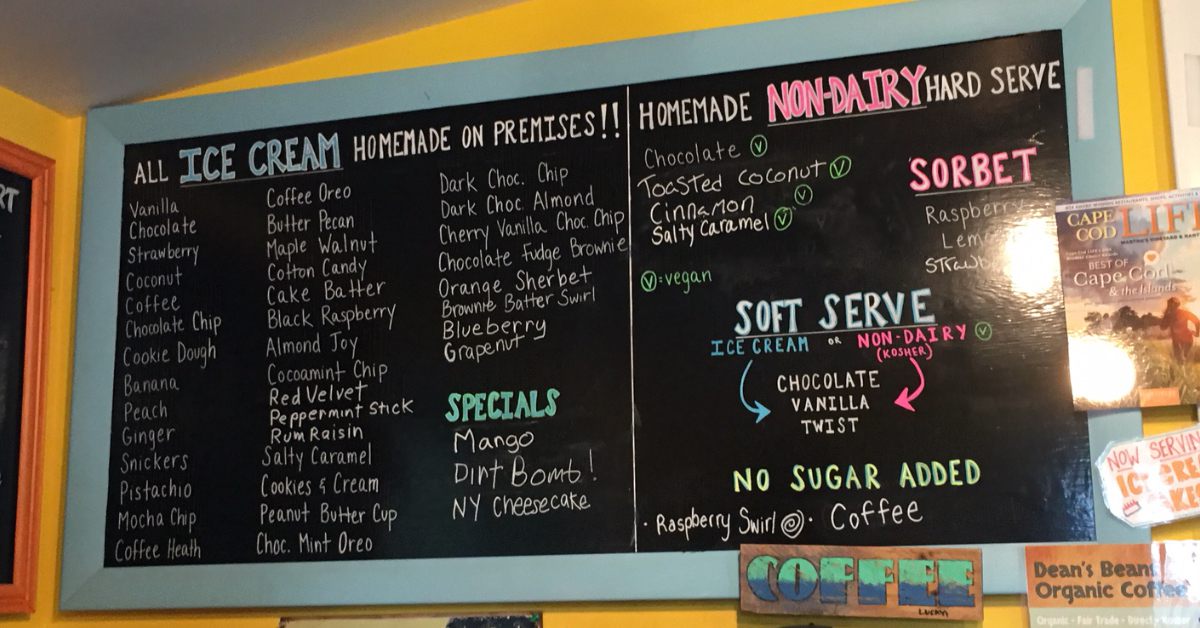 RT
ALL ICE CREAM HOMEMADE ON PREMISES!!
Vanilla
Chocolate
Strawberry
Coconut
Coffee
Chocolate Chip
Cookie Dough
Banana
Peach
Ginger
Snickers
Pistachio
Mocha Chip
Coffee Heath
Coffee Oreo
Butter Pecan
Maple Walnut
Cotton Candy
Cake Batter
Black Raspberry
Almond Joy
Cocoamint Chip
Red Velvet
Peppermint Stick
Rum Raisin
Salty Caramel
Cookies & Cream
Peanut Butter Cup
Choc. Mint Oreo
Dark Choc. Chip
Dark Choc. Almond
Cherry Vanilla Choc. Chip
Chocolate Fudge Brownie
Orange Sherbet
Brownie Batter Swirl
Blueberry
Grapenut
SPECIALS
Mango
Dirt Bomb!
NY Cheesecake
HOMEMADE NON-DAIRY HARD SERVE
Chocolate V
Toasted Coconut V
Cinnamon V
Salty Caramel V
V=vegan
SORBET
Raspberry
SOFT SERVE
ICE CREAM OR NON-DAIRY V
(KOSHER)
CHOCOLATE
VANILLA
TWIST
NO SUGAR ADDED
· Raspberry Swirl · Coffee
CAPE COD LIFE
BEST OF
Cape Cod
& the Islands
NOW SERVIN
COFFEE
Dean's Beans
Organic Coffee
Organic · Fair Trade ·